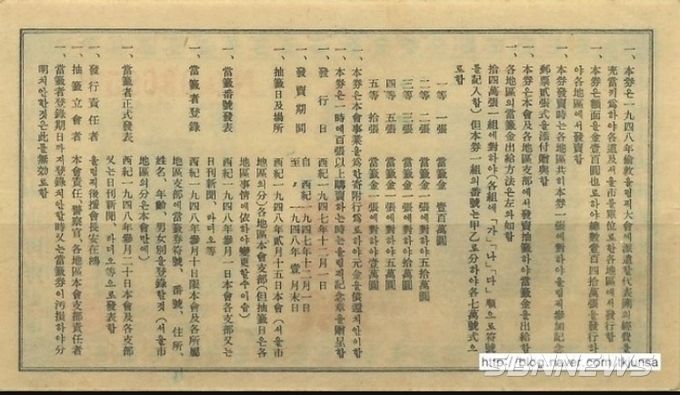 一、本券은一九四八年倫敦올림픽大會에派遣할代表團의經費를
充當키爲하야各道及서울市單位로하야
一、本券은額面을金壹百圓也로하야總數壹百四拾萬張을發行하
야各地區에서發賣함
一、本券發賣時는各地區共히本券一張에對하야올림픽參加記念
郵票貳張式을添付贈與함
一、本券은本會及各地區支部에서發賣抽籤하야當籤金을出給함
各地區의當籤金出給方法은左와如함
拾四萬張一組에對하야(各組에「가」「나」「다」順으로符號
를記入함)但本券一組의番號는甲乙로分하야各七萬號式으
로함
一等 一張 當籤金 壹百萬圓
二等 二張 當籤金一張에對하야五拾萬圓
三等 三張 當籤金一張에對하야拾萬圓
四等 五張 當籤金一張에對하야五萬圓
五等 拾張 當籤金一張에對하야壹萬圓
一、本券은本會事業을爲한寄附行爲로하야元金을償還치안이함
一、本券은一時에百張以上購買하는時는올림픽記念章을贈呈함
一、發行日 西紀一九四七年十二月一日
一、發賣期間 自 西紀一九四七年十二月一日
至 〃 一九四八年壹月末日
一、抽籤日及場所 西紀一九四八年貳月十五日本會(서울市
地區의分)各地區本會支部(但抽籤日은各
地區事情에依하야變更할수이슴)
一、當籤番號發表 西紀一九四八年參月一日本會各支部又는
日刊新聞、라디오等
一、當籤者登錄 西紀一九四八年參月十日限本會及各所屬
地區支部에當籤券符號、番號、住所、
姓名、年齡、男女別을登錄할것(서울市
地區의分은本會만에)
一、當籤者正式發表 西紀一九四八年參月二十日本會及各支部
又는日刊新聞、라디오等으로發表함
一、發行責任者 올림픽後援會長安在鴻
一、抽籤立會者 本會責任、警察官、各地區本會支部責任者
一、當籤者登錄期日까지登錄지안할時又는當籤券이汚損하야分
明치안할것은此를無効로함
http://blog.naver.com/tkjunsa
SBNNEWS